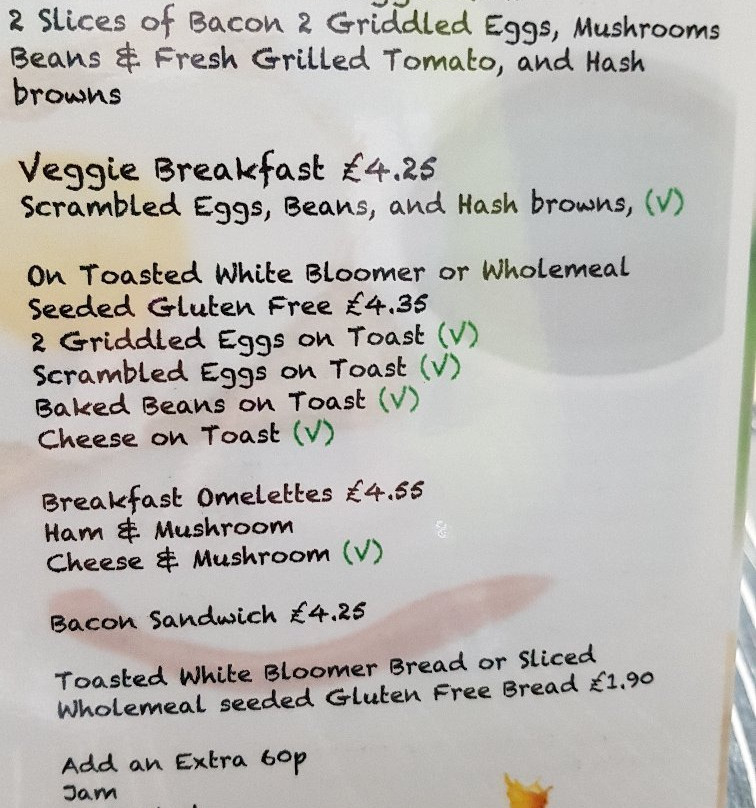 2 Slices of Bacon 2 Griddled Eggs, Mushrooms
Beans & Fresh Grilled Tomato, and Hash
browns
Veggie Breakfast £4.25
Scrambled Eggs, Beans, and Hash browns, (V)
On Toasted White Bloomer or Wholemeal
Seeded Gluten Free £4.35
2 Griddled Eggs on Toast (V)
Scrambled Eggs on Toast (V)
Baked Beans on Toast (V)
Cheese on Toast (V)
Breakfast Omelettes £4.55
Ham & Mushroom
Cheese & Mushroom (V)
Bacon Sandwich £4.25
Toasted White Bloomer Bread or Sliced
Wholemeal seeded Gluten Free Bread £1.90
Add an Extra 60p
Jam